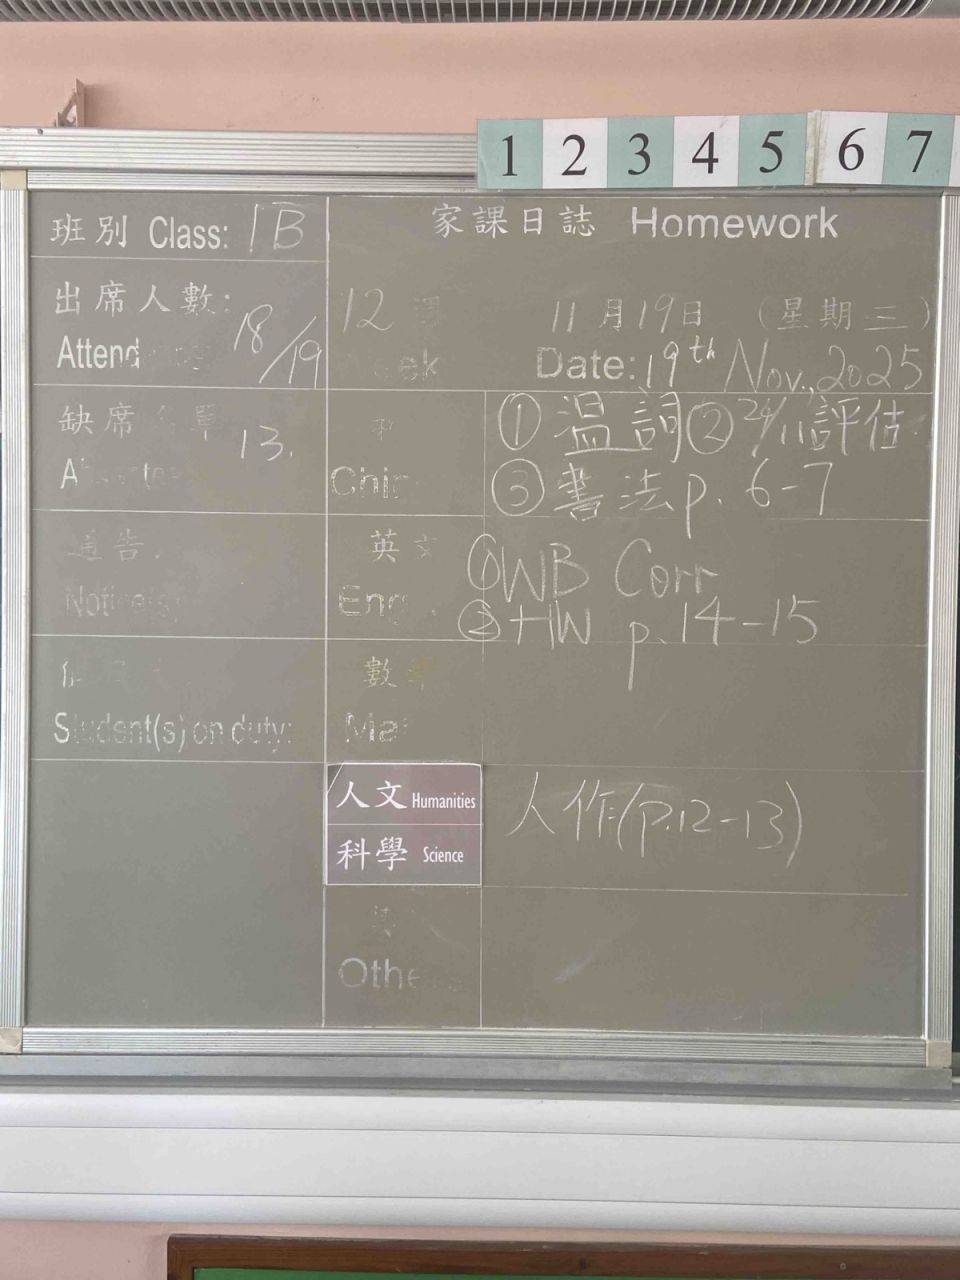 1 2 3 4 5 6 7
班別 Class: 1B
家課日誌 Homework
出席人數:
Attend
18/19
12
11月19日 (星期三)
Date: 19th Nov., 2025
缺席 單
13.
中
Chin
① 温詞 ② 24/11評估
③ 書法 p. 6-7
通告
Notice(s)
英文
Eng
① WB Corr
② HW p. 14-15
Student(s) on duty:
數學
Mat
人文 Humanities
科學 Science
人作(p.12-13)
其
Othe